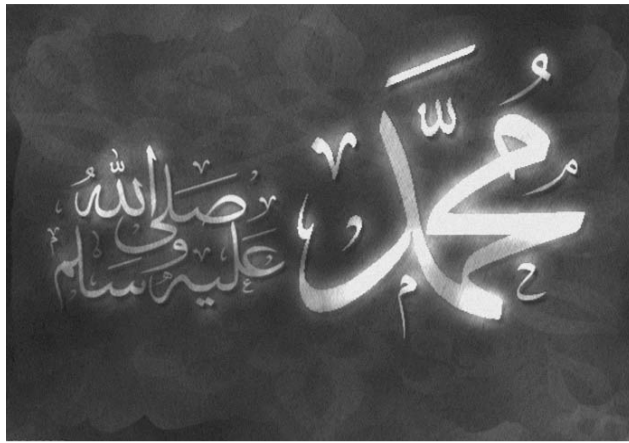 محمّد
صلى الله
عليه وسلم